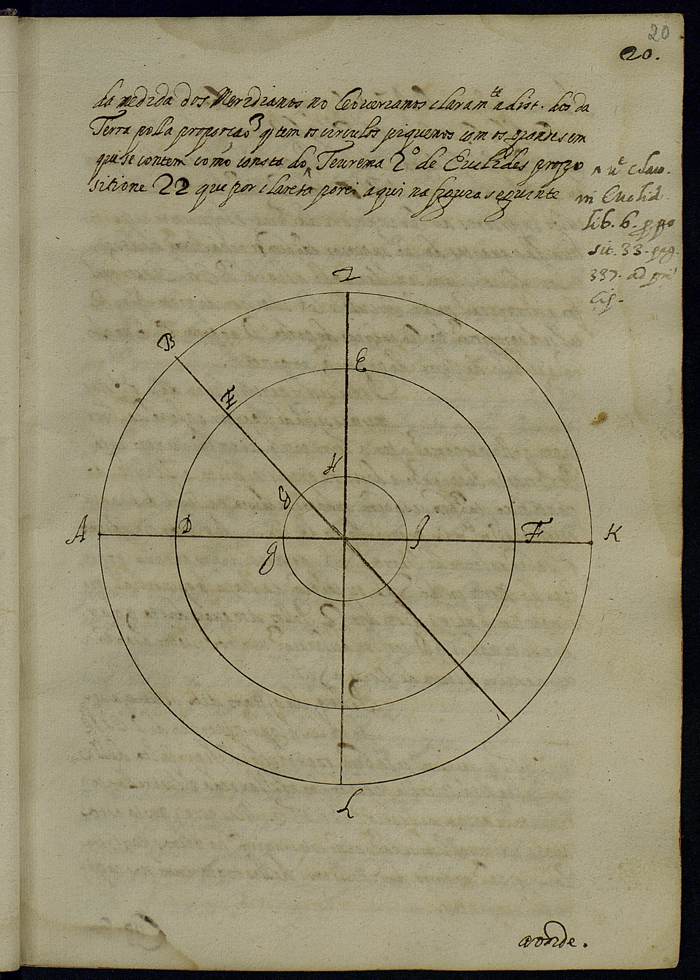 20
20.
da medida dos Meridianos no Ceo veriamos claram.te a dist. dos da
Terra polla proporçaõ q tem os circulos piquenos com os grandes em
que se contem como consta do Teurema 2º de Euclides propo
sitione 22 que por clareza porei aqui na figura seguinte
n u.e Clavo.
in Euclid
lib. 6. propo
sit. 33. pag.
337. ad prin
cip.
Z
B
E
H
H
G
A
D
g
J
F
K
L
aonde.